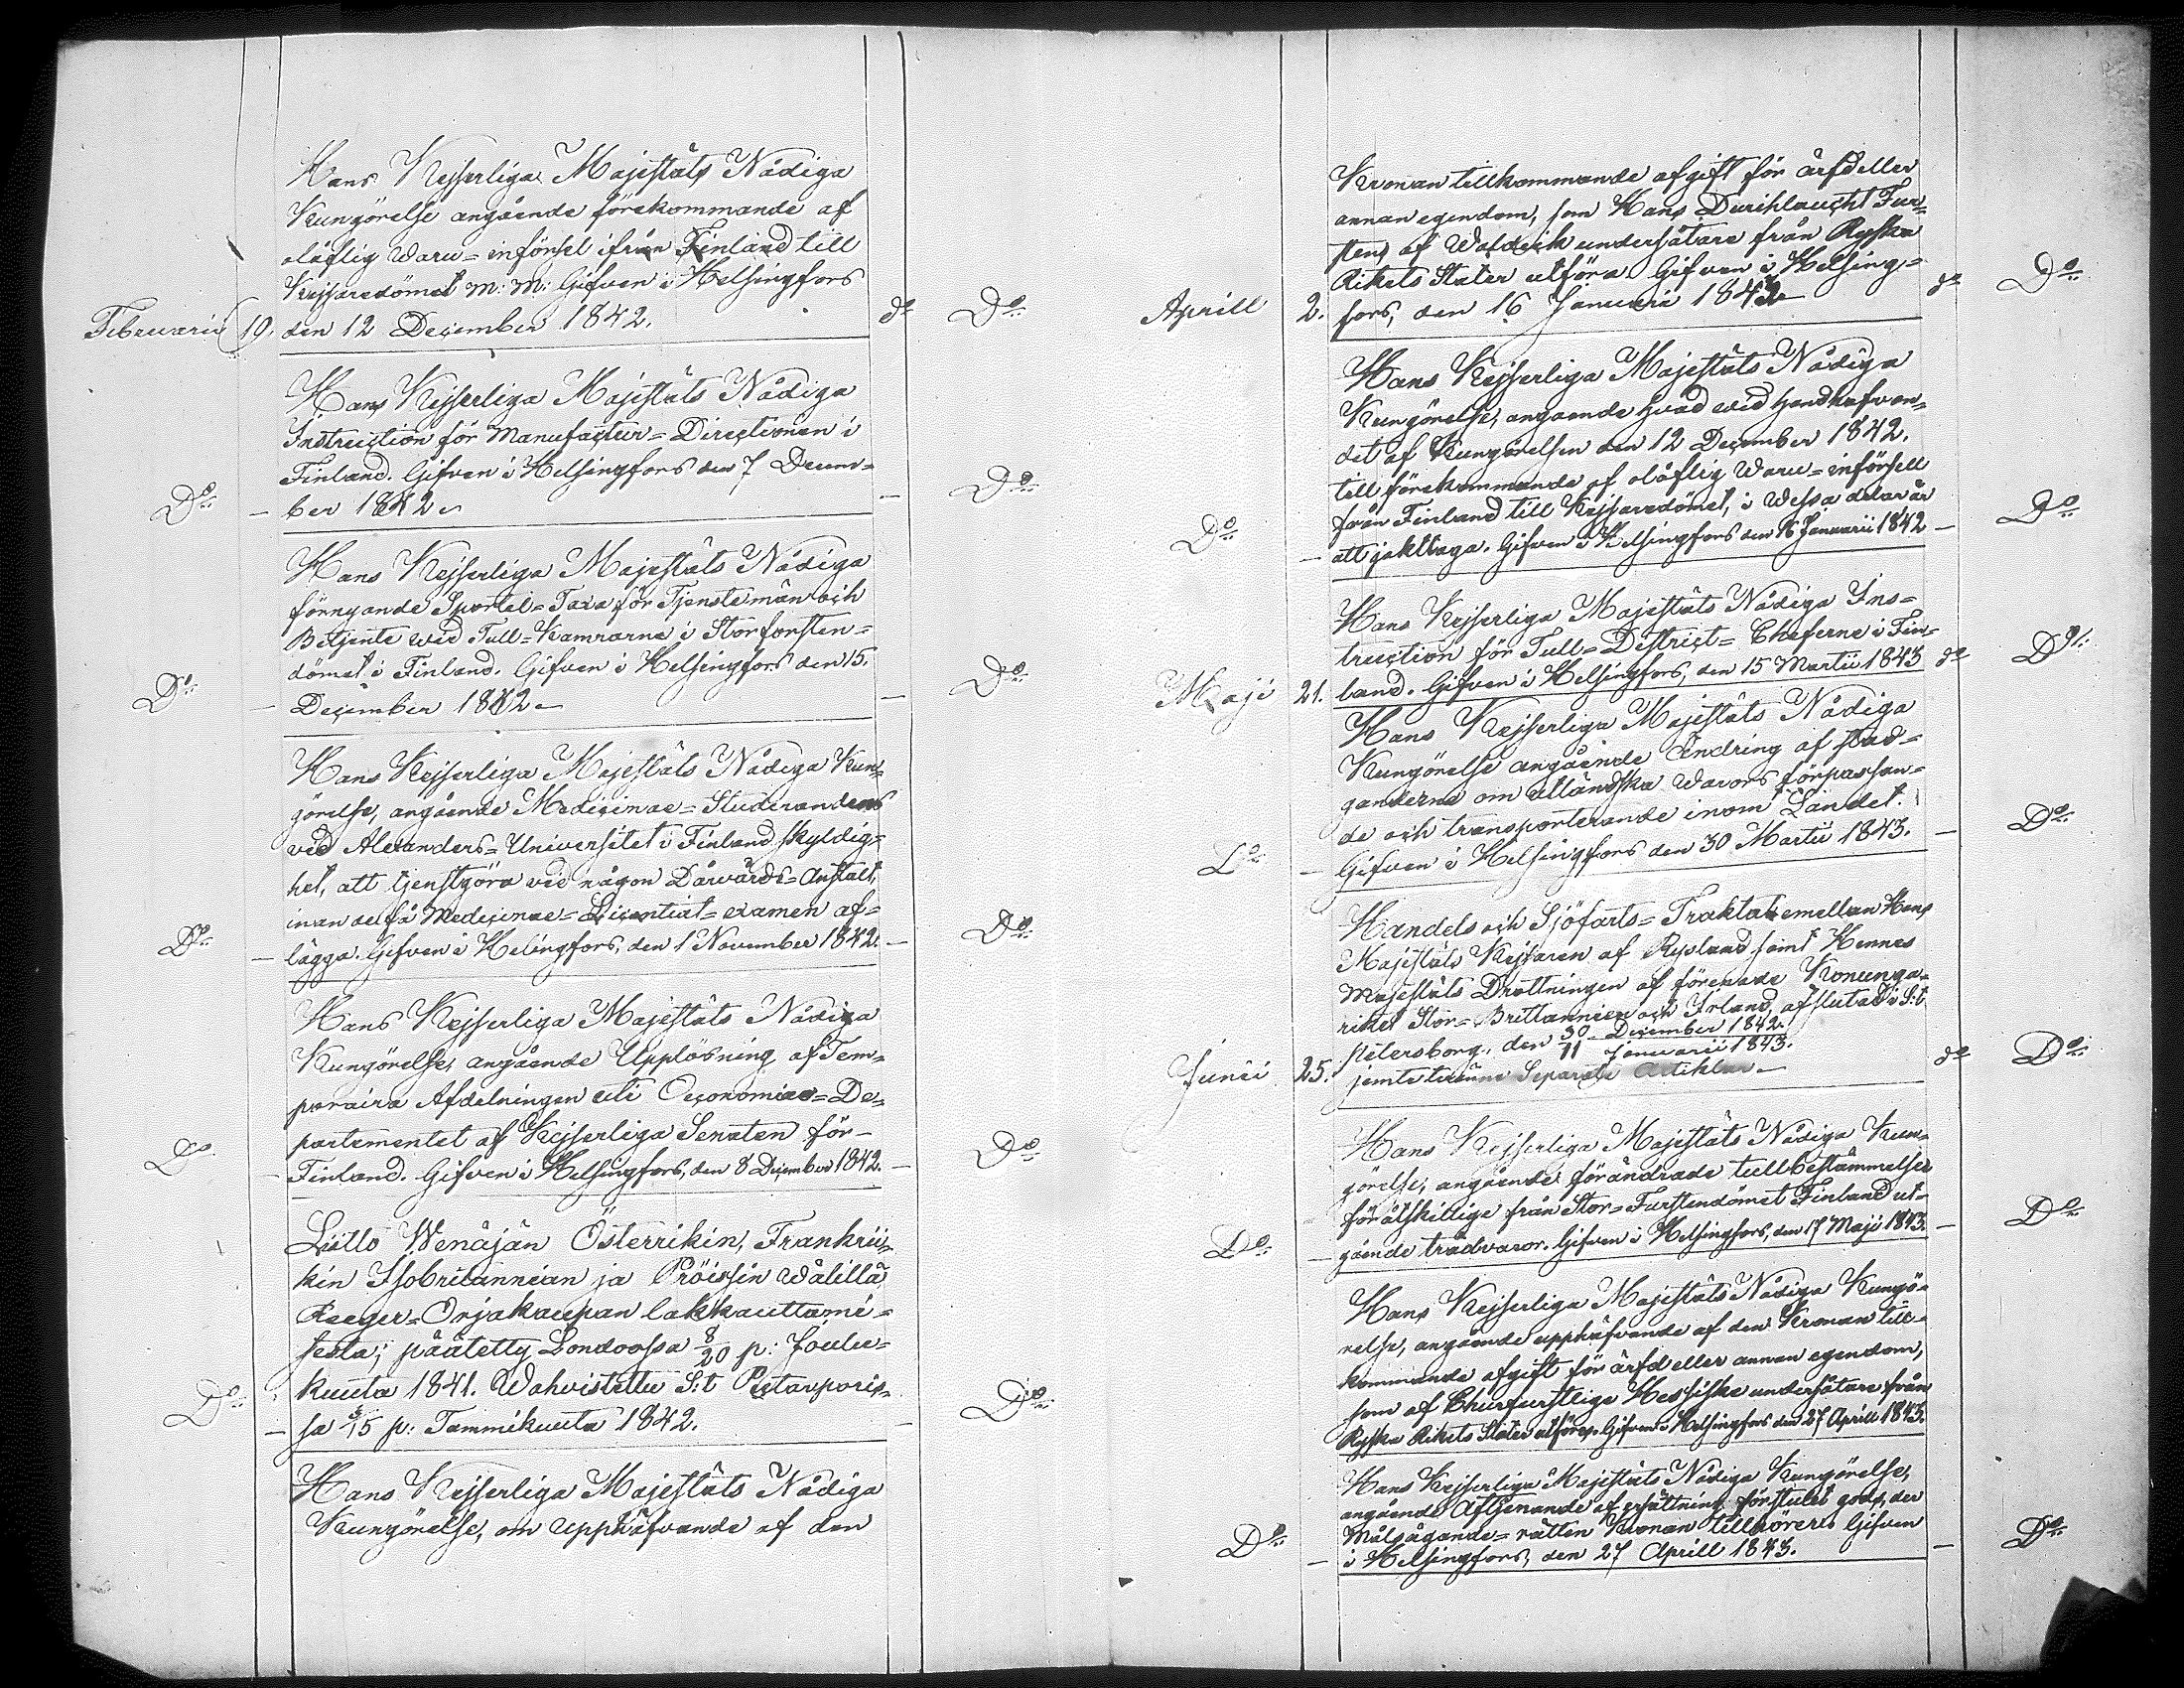 Hans Kejserliga Majestäts Nådiga
Kungörelse angående förekommande af
olåflig Waru=införsel ifrån Finland till
Kejsaredömet m: m: Gifven i Helsingfors
Februarii 19. den 12 December 1842. do Do
Hans Kejserliga Majestäts Nådiga
Instruction för Manufactur=Directionen i
Finland. Gifven i Helsingfors den 7 Decem=
Do – ber 1842 – Do
Hans Kejserliga Majestäts Nådiga
förnyande Sportel=Taxa för Tjenstemän och
Betjente wid Tull=Kamrarne i Storforsten=
dömet i Finland. Gifven i Helsingfors den 15.
Do – December 1842 – Do
Hans Kejserliga Majestäts Nådiga Kun=
görelse, angående Medicinae=Studerandens
ved Alexanders=Universitet i Finland skyldig=
het, att tjenstgöra ved någon Dårvårds=Anstalt,
inan de få Medicinae=Licentiat=examen af=
Do – lägga. Gifven i Helsingfors, den 1 November 1842. – Do
Hans Kejserliga Majestäts Nådiga
Kungörelse, angående Upplösning af Tem=
poraira Afdelningen uti Oeconomiae=De=
partementet af Kejserliga Senaten för
Do – Finland. Gifven i Helsingfors, den 8 December 1842. – Do
Liitto Wenäjän Österrikin, Frankrii=
kin Isobritannian ja Pröissin wälillä
Neeger=Orjakaupan lakkauttami=
sesta; päätetty Londoossa 8/20 p: Joulu=
kuuta 1841. Wahvistettu S:t Pietarporis=
Do – sa 3/15 p: Tammikuuta 1842. – Do
Hans Kejserliga Majestäts Nådiga
Kungörelse, om upphäfvande af den
Kronan tillkommande afgift för ärfd eller
annan egendom, som Hans Durchlaucht Fur=
stens af Waldeck undersåtare från Ryska
Rikets Stater utföra. Gifven i Helsing=
Aprill 2. fors, den 16 Januari 1842 do Do
Hans Kejserliga Majestäts Nådiga
Kungörelse, angaende hvad wid handhafvan=
det af Kungörelsen den 12 December 1842.
till förekommande af olåflig Waru=införsell
från Finland till Kejsaredömet, i wessa delar är
Do – att jakttaga. Gifven i Helsingfors den 16 Januarii 1842 – Do
Hans Kejserliga Majestäts Nådiga Ins=
truction för Tull=District=Cheferne i Fin=
Maji 21. land. Gifven i Helsingfors, den 15 Martii 1843 do Do
Hans Kejserliga Majestäts Nådiga
Kungörelse angående Ändring af stad=
ganderne om utländska Warors förpassan=
de och transporterande inom Landet.
Do – Gifven i Helsingfors den 30 Martii 1843. – Do
Handels och Sjöfarts=Traktat emellan Hans
Majestäts Kejsaren af Rysland samt Hennes
Majestäts Drottningen af förenade Konunga=
riket Stor=Brittannien och Irland, afslutad i S:t
Petersborg, den 30 December 1842. / 11 Januarii 1843.
Junii 25. jemte Separate Artiklar – do Do
Hans Kejserliga Majestäts Nådiga Kun=
görelse, angående förändrade tullbestämmelser
för åtskillige från Stor=Furstendömet Finland ut=
Do – gående trädvaror. Gifven i Helsingfors, den 17 Maji 1843. – Do
Hans Kejserliga Majestäts Nådiga Kungö=
relse, angående upphäfvande af den Kronan till=
kommande afgift för ärfd eller annan egendom,
som af Churfurstlige Hessiske undersåtare från
Ryska Rikets Stater utföres. Gifven i Helsingfors den 27 Aprill 1843.
Hans Kejserliga Majestäts Nådiga Kungörelse,
angående Aftjenande af ersättning för stulet gods, der
Målsägande=rätten Kronan tillhörer. Gifven
Do – i Helsingfors, den 27 Aprill 1843. – Do